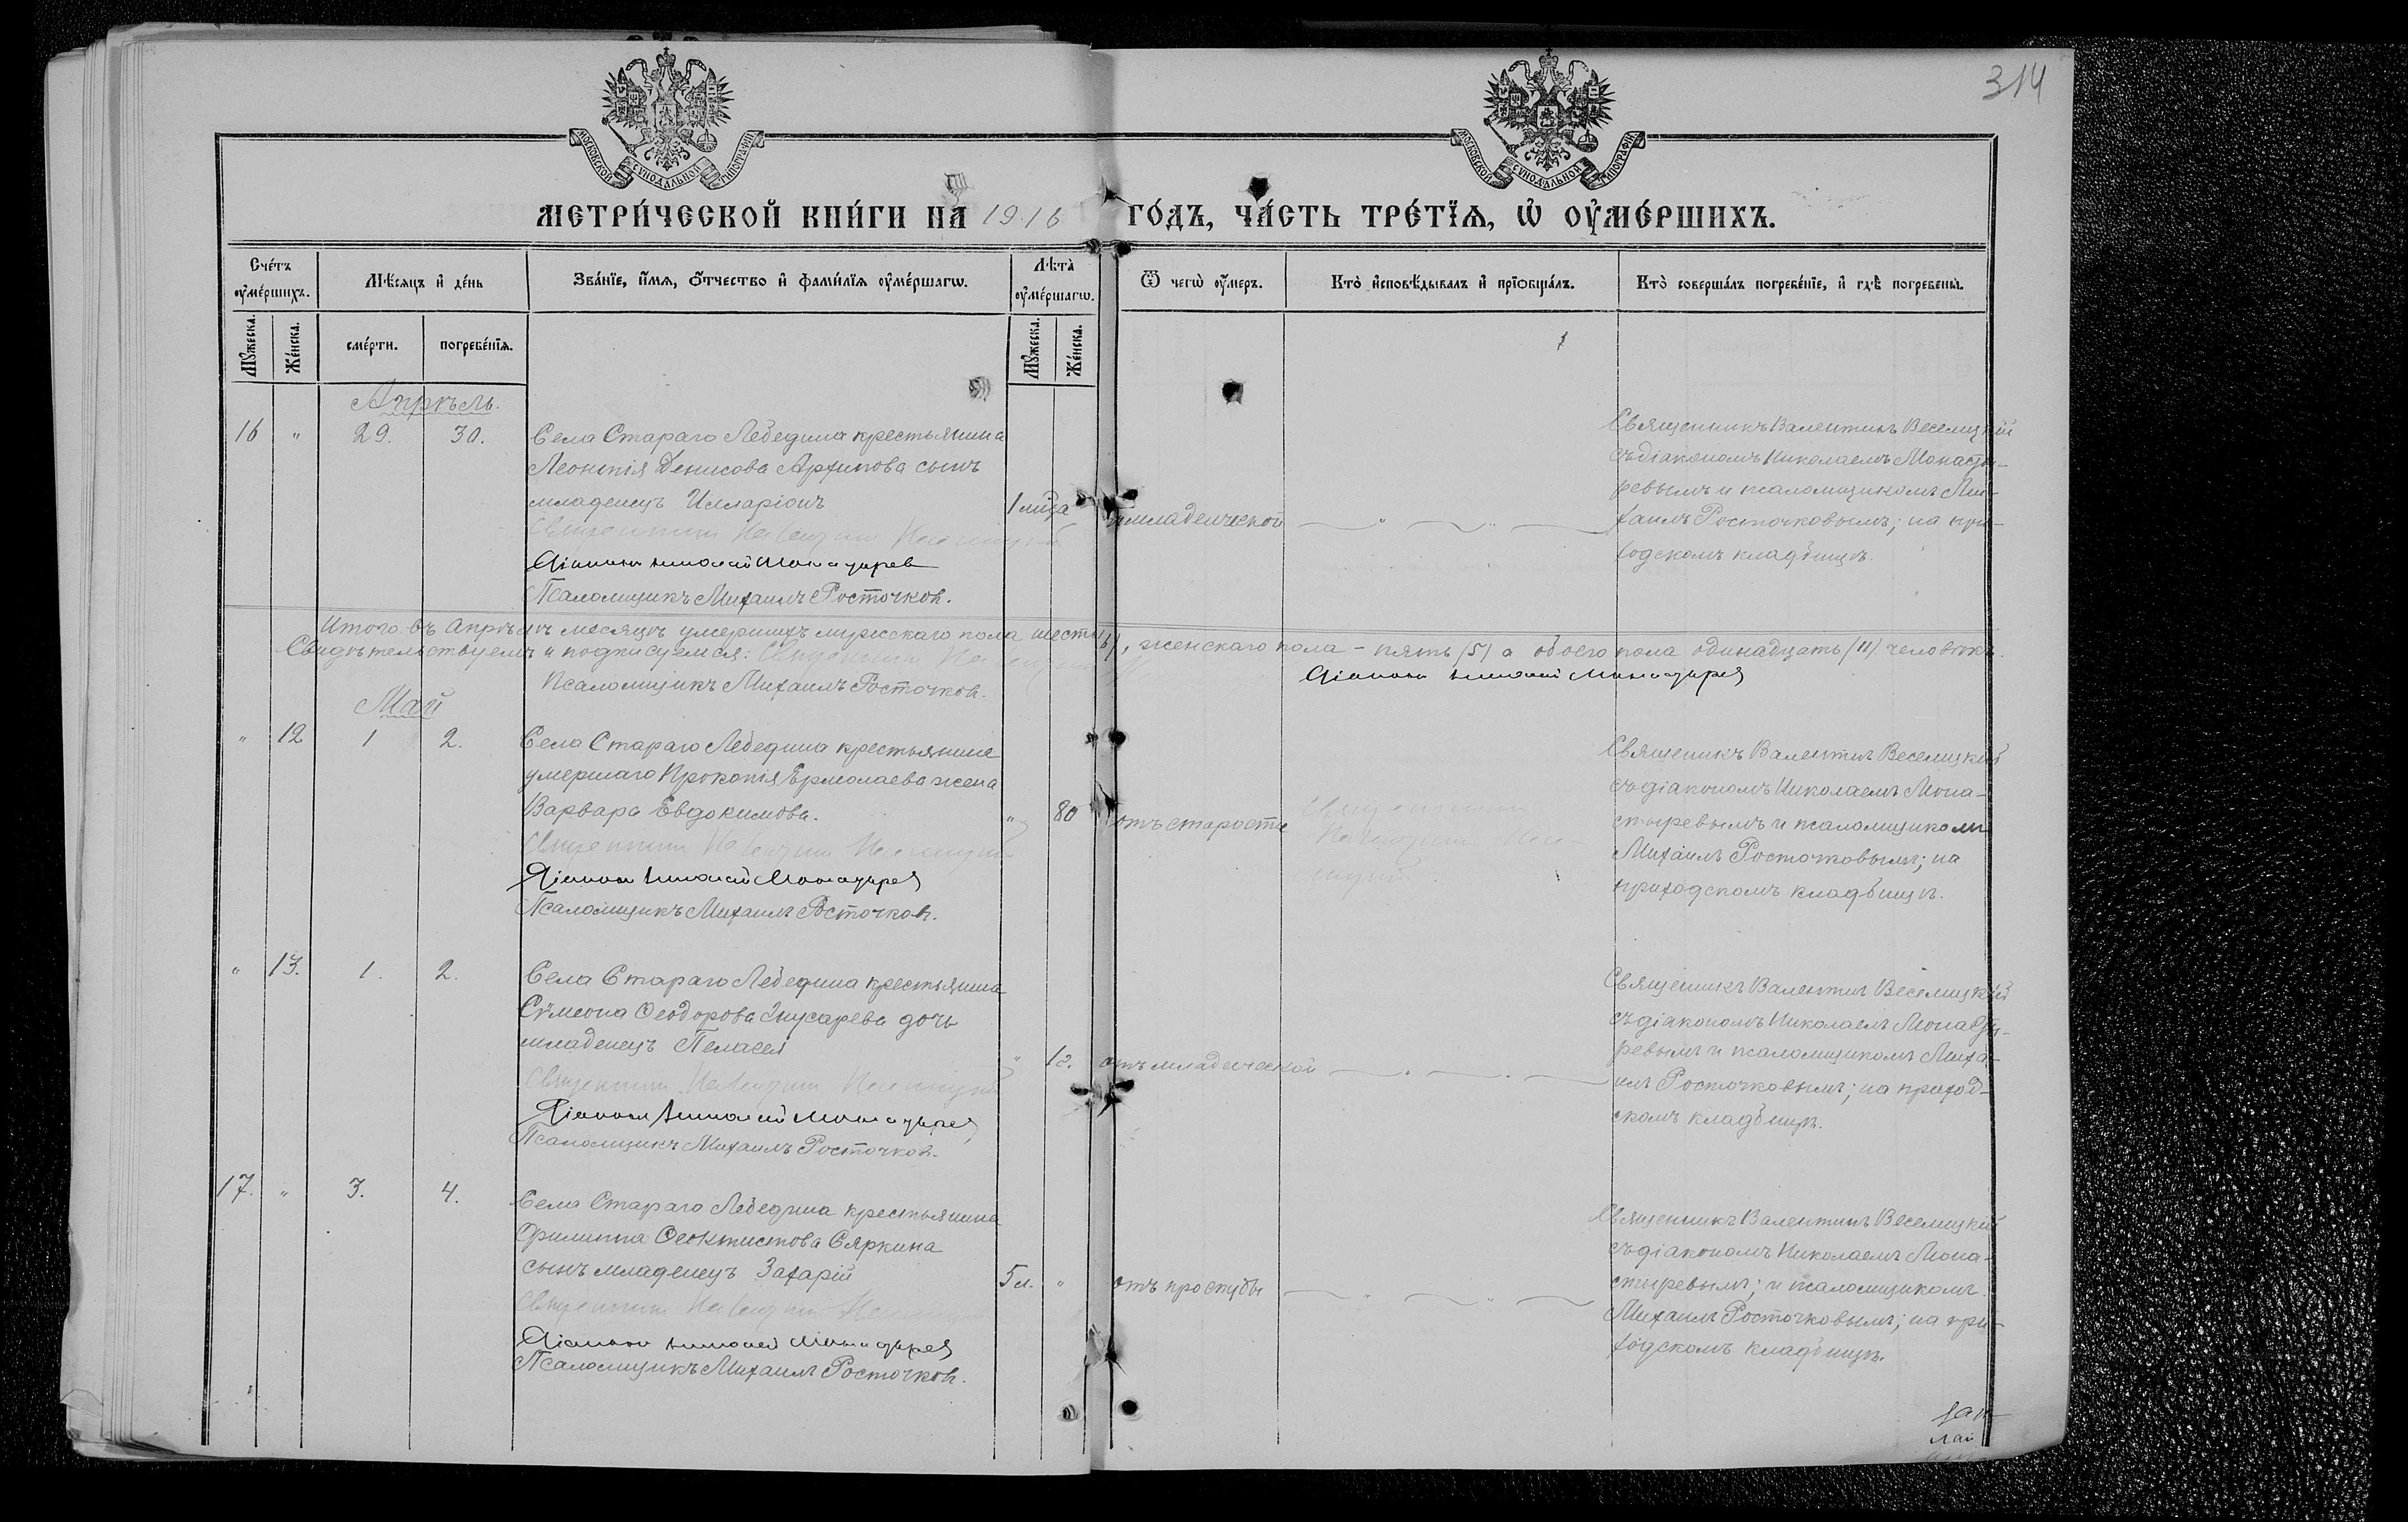 314
МОСКОВСКОЙ СУНОДАЛЬНОЙ ТИПОГРАФІИ
МОСКОВСКОЙ СУНОДАЛЬНОЙ ТИПОГРАФІИ
МЕТРИ́ЧЕСКОЙ КНИ́ГИ НА 1916 ГО́ДЪ, ЧА́СТЬ ТРЕ́ТЇѦ, Ѡ҆ ОУ҆МЕ́РШИХЪ.
Сче́тъ оу҆ме́ршихъ.
Мѣ́сяцъ и҆ де́нь
Зва́нїе, и҆́мя, о҆́тчество и҆ фами́лїя оу҆ме́ршагѡ.
Лѣта̀ оу҆ме́ршагѡ.
Ѿ чегѡ̀ оу҆́меръ.
Кто̀ и҆сповѣ́дывалъ и҆ прїѡбща́лъ.
Кто̀ соверша́лъ погребе́нїе, и҆ гдѣ̀ погребены̀.
Мꙋ́жеска.
Же́нска.
сме́рти.
погребе́нїя.
Мꙋ́жеска.
Же́нска.
Апрѣль.
16 " 29. 30.
Села Стараго Лебедина крестьянина
Леонтія Денисова Архипова сынъ
младенецъ Илларіонъ
Священникъ Валентинъ Веселицкій
Діаконъ Николай Монастырев
Псаломщикъ Михаилъ Росточков.
младенческой
Священникъ Валентинъ Веселицкій
съ діакономъ Николаемъ Монасты-
ревымъ и псаломщикомъ Ми-
хаилъ Росточковымъ; на при-
ходскомъ кладбищѣ.
Итого въ Апрѣлѣ месяцѣ умершихъ мужскаго пола шесть (6), женскаго пола – пять (5) а обоего пола одинадцать (11) человѣкъ.
Свидѣтельствуемъ и подписуемся: Священникъ Валентинъ
Діаконъ Николай Монастырев
Псаломщикъ Михаилъ Росточков.
Май
" 12 1 2.
Села Стараго Лебедина крестьянина
умершаго Прокопія Ермолаева жена
Варвара Евдокимова.
Священникъ Валентинъ Веселицкій
Діаконъ Николай Монастырев
Псаломщикъ Михаилъ Росточков.
" 80
отъ старости
Священникъ
Валентинъ Весе-
лицкій
Священикъ Валентинъ Веселицкій
съ діакономъ Николаемъ Мона-
стыревымъ и псаломщикомъ
Михаилъ Росточковымъ; на
приходскомъ кладбищѣ.
" 13. 1. 2.
Села Стараго Лебедина крестьянина
Сѵмеона Ѳеодорова дочь
младенецъ Пелагея
Священникъ Валентинъ Веселицкій
Діаконъ Николай Монастырев
Псаломщикъ Михаилъ Росточков.
" 1г.
отъ младенческой
Священикъ Валентинъ Веселицкій
съ діакономъ Николаемъ Монасты-
ревымъ и псаломщикомъ Миха-
илъ Росточковымъ; на приход-
скомъ кладбищѣ.
17. " 3. 4.
Села Стараго Лебедина крестьянина
Филиппа Ѳеоктистова Сяркина
сынъ младенецъ Захарій
Священникъ Валентинъ
Діаконъ Николай Монастырев
Псаломщикъ Михаилъ Росточков.
5 л. "
отъ простуды
Священникъ Валентинъ Веселицкій
съ діакономъ Николаемъ Мона-
стыревымъ; и псаломщикомъ
Михаилъ Росточковымъ; на при-
ходскомъ кладбищѣ.